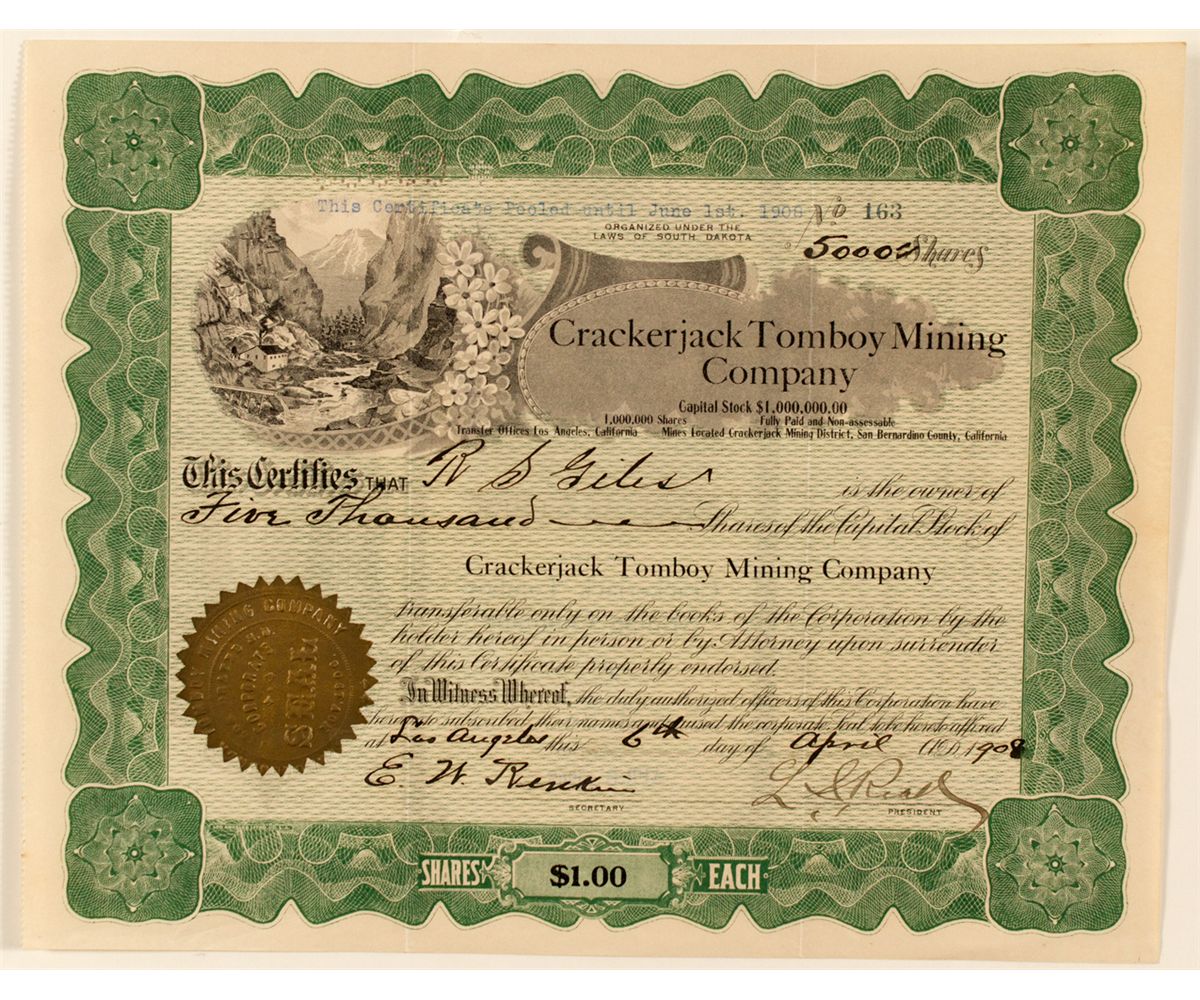 This Certificate Pooled until June 1st. 1908
No 163
ORGANIZED UNDER THE
LAWS OF SOUTH DAKOTA
5000 Shares
Crackerjack Tomboy Mining
Company
Capital Stock $1,000,000.00
1,000,000 Shares Fully Paid and Non-assessable
Transfer Offices Los Angeles, California Mines Located Crackerjack Mining District, San Bernardino County, California
This Certifies THAT R S Giles is the owner of
Five Thousand Shares of the Capital Stock of
Crackerjack Tomboy Mining Company
transferable only on the books of the Corporation by the
holder hereof in person or by Attorney upon surrender
of this Certificate properly endorsed.
In Witness Whereof, the duly authorised officers of this Corporation have
hereunto subscribed their names and caused the corporate Seal to be hereto affixed
at Los Angeles this 6th day of April A.D. 1908
MINING COMPANY
E. W.
SECRETARY
PRESIDENT
SHARES $1.00 EACH